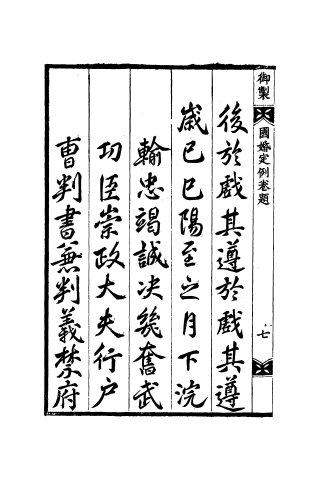 御製
國婚定例卷題
七
後於戲其遵於戲其遵
歲己巳陽至之月下浣
輸忠竭誠决幾奮武
功臣崇政大夫行户
曹判書兼判義禁府